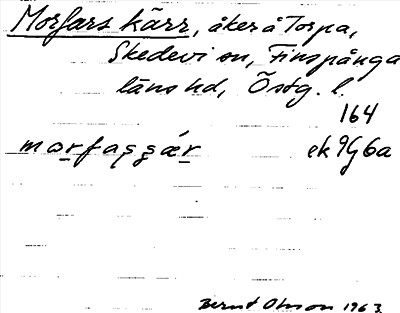 Morfars kärr, åker å Torpa,
Skedevi sn, Finspånga
läns hd, Östg. l.
164
marfaşşær ek 9G6a
Bernt Olsson 1963